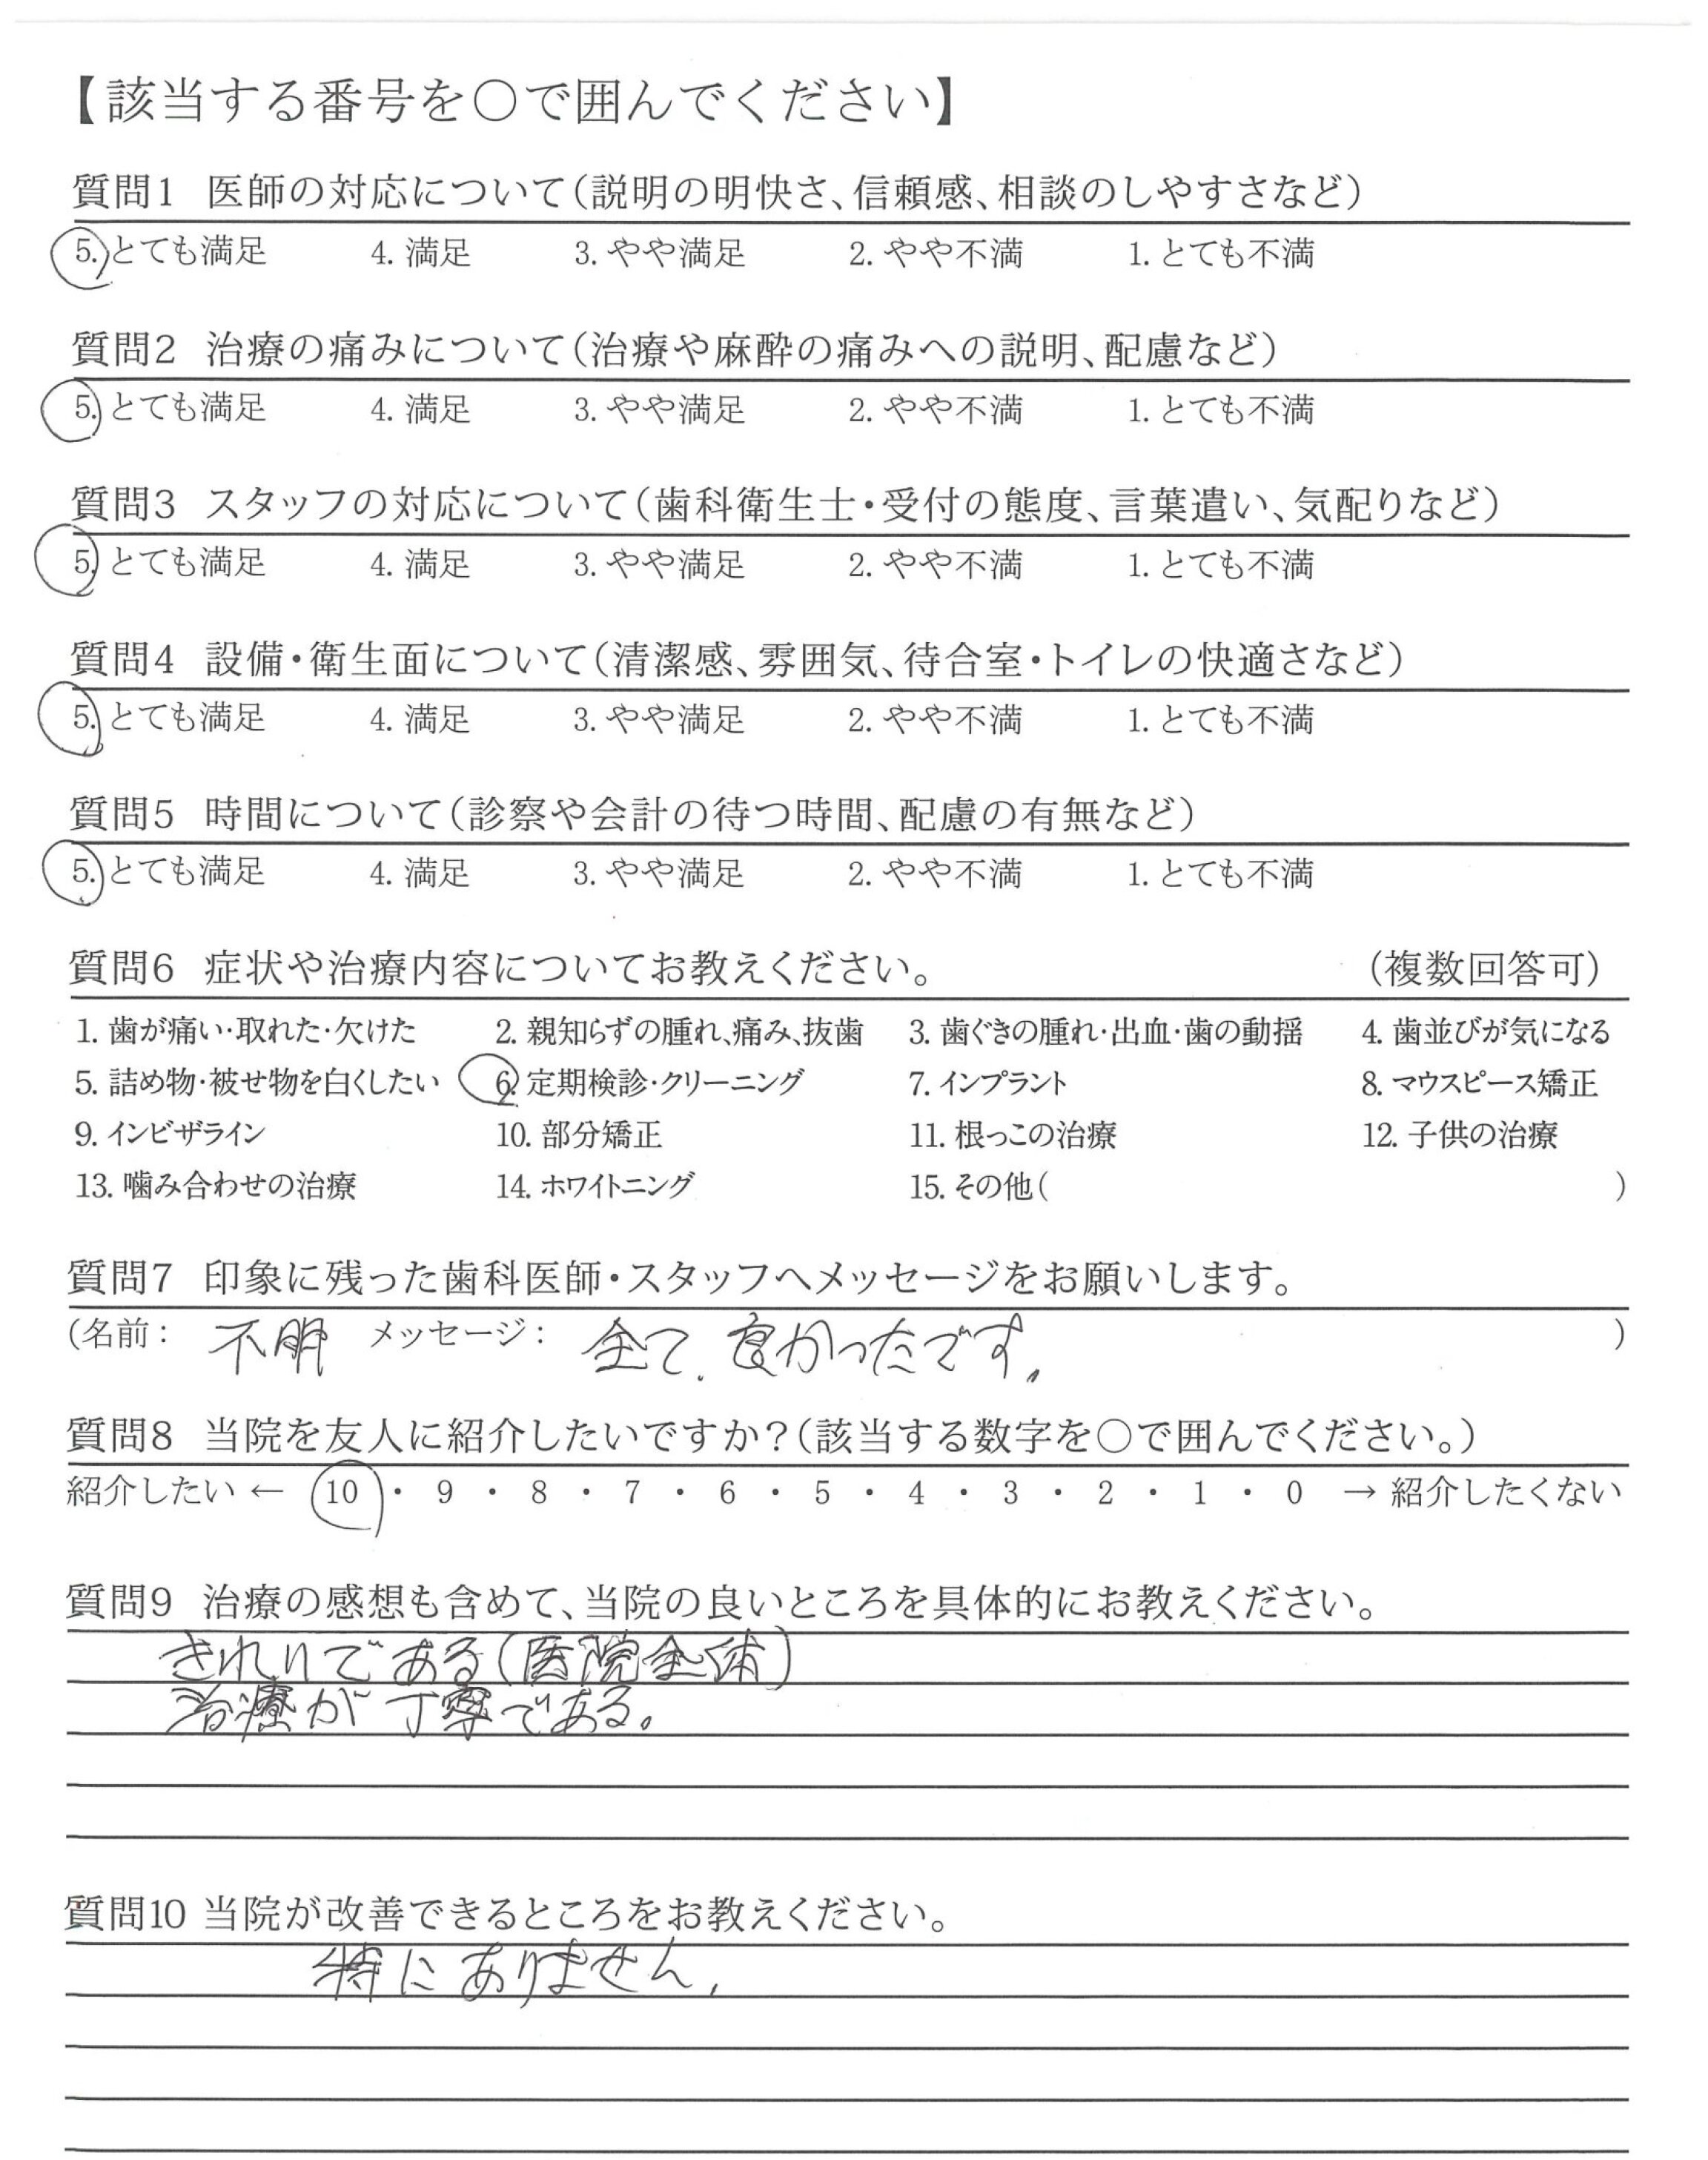 【該当する番号を○で囲んでください】
質問1 医師の対応について(説明の明快さ、信頼感、相談のしやすさなど)
5. とても満足 4. 満足 3. やや満足 2. やや不満 1. とても不満
質問2 治療の痛みについて(治療や麻酔の痛みへの説明、配慮など)
5. とても満足 4. 満足 3. やや満足 2. やや不満 1. とても不満
質問3 スタッフの対応について(歯科衛生士・受付の態度、言葉遣い、気配りなど)
5. とても満足 4. 満足 3. やや満足 2. やや不満 1. とても不満
質問4 設備・衛生面について(清潔感、雰囲気、待合室・トイレの快適さなど)
5. とても満足 4. 満足 3. やや満足 2. やや不満 1. とても不満
質問5 時間について(診察や会計の待つ時間、配慮の有無など)
5. とても満足 4. 満足 3. やや満足 2. やや不満 1. とても不満
質問6 症状や治療内容についてお教えください。 (複数回答可)
1. 歯が痛い・取れた・欠けた 2. 親知らずの腫れ、痛み、抜歯 3. 歯ぐきの腫れ・出血・歯の動揺 4. 歯並びが気になる
5. 詰め物・被せ物を白くしたい 6. 定期検診・クリーニング 7. インプラント 8. マウスピース矯正
9. インビザライン 10. 部分矯正 11. 根っこの治療 12. 子供の治療
13. 噛み合わせの治療 14. ホワイトニング 15. その他( )
質問7 印象に残った歯科医師・スタッフへメッセージをお願いします。
(名前: 不明 メッセージ: 全て、良かったです。 )
質問8 当院を友人に紹介したいですか?(該当する数字を○で囲んでください。)
紹介したい ← 10 ・ 9 ・ 8 ・ 7 ・ 6 ・ 5 ・ 4 ・ 3 ・ 2 ・ 1 ・ 0 → 紹介したくない
質問9 治療の感想も含めて、当院の良いところを具体的にお教えください。
きれいである(医院全体)
治療が丁寧である。
質問10 当院が改善できるところをお教えください。
特にありません。